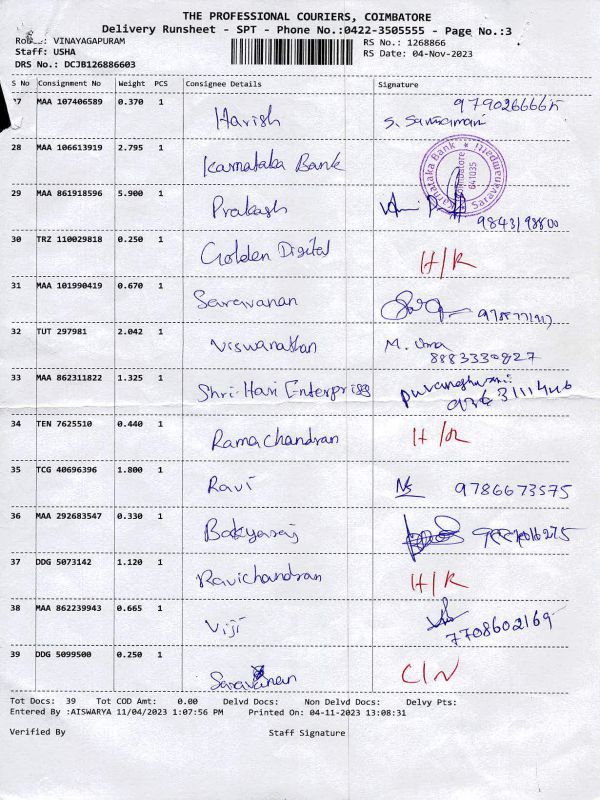 THE PROFESSIONAL COURIERS, COIMBATORE
Delivery Runsheet - SPT - Phone No.:0422-3505555 - Page No.:3
VINAYAGAPURAM
RS No.: 1268866
Staff: USHA
RS Date: 04-Nov-2023
DRS No.: DCJB126886603
S No Consignment No Weight PCS Consignee Details Signature
27 MAA 107406589 0.370 1 Harish
28 MAA 106613919 2.795 1 Karnataka Bank Karnataka Bank Coimbatore 641035
29 MAA 861918596 5.900 1 Prakash
30 TRZ 110029818 0.250 1 Golden Digital H/R
31 MAA 101990419 0.670 1 Saravanan
32 TUT 297981 2.042 1 Viswanathan M. Uma
8883330827
33 MAA 862311822 1.325 1 Shri Hari Enterprises
34 TEN 7625510 0.440 1 Ramachandran H/R
35 TCG 40696396 1.800 1 Ravi 9786673575
36 MAA 292683547 0.330 1 Bakyaraj
37 DDG 5073142 1.120 1 Ravichandran H/R
38 MAA 862239943 0.665 1 Viji
7708602169
39 DDG 5099500 0.250 1 Saravanan C/N
Tot Docs: 39 Tot COD Amt: 0.00 Delvd Docs: Non Delvd Docs: Delvy Pts:
Entered By :AISWARYA 11/04/2023 1:07:56 PM Printed On: 04-11-2023 13:08:31
Verified By Staff Signature